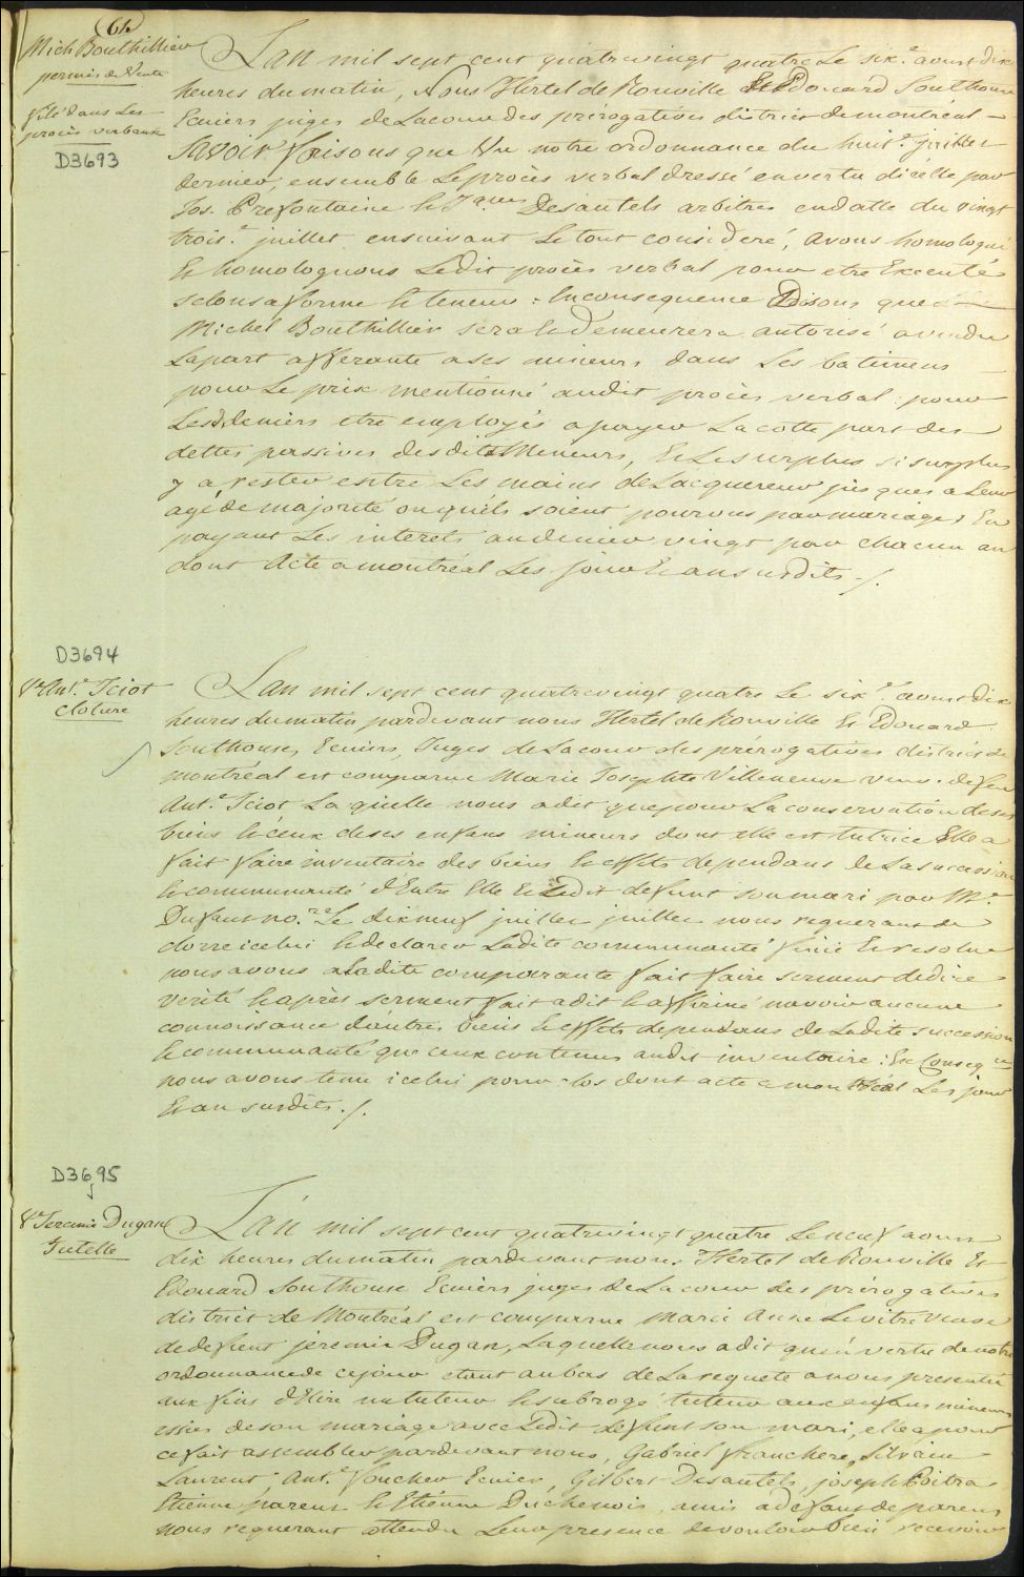 64
Mich Bouthillier
permis de Vente
filé dans les
procès verbaux
D3693
Lan mil sept cent quatrevingt quatre Le six.e aoust dix
heures du matin, Nous Hertel de Rouville Et Edouard Southouse
Ecuiers juges de La cour des prérogatives district de montréal
Savoir faisons que Vu notre ordonnance du huit.e juillet
dernier, ensemble Le procès verbal dressé en vertu d'icelle par
Jos. Prefontaine & Jques Desautels arbitres en datte du vingt
trois.e juillet ensuivant Le tout consideré, avons homologué
& homologuons Ledit procès verbal pour etre Executés
selon sa forme & teneur : En consequence Disons que
Michel Bouthillier sera & demeurera autorisé a vendre
La part afferante a ses mineurs dans Les batimens
pour Le prix mentionné audit procès verbal pour
Les deniers etre employés a payer La cotte part des
dettes passives desdits Mineurs, & Le surplus si surplus
y a, rester entre Les mains de Lacquereur jus ques a Leur
age de majorité ou qu'ils soient pourvus par mariage, En
payant Les interets au denier vingt par chacun an
dont Acte a montréal Les jour & an susdits ./.
D3694
Ve Ant.e Iciot
cloture
Lan mil sept cent quatrevingt quatre Le six.e aoust dix
heures du matin pardevant nous Hertel de Rouville & Edouard
Southouse, Ecuiers, Juges de La cour des prérogatives district de
montréal est comparue Marie Josephte Villeneuve veuve de feu
Ant.e Iciot La quelle nous a dit que pour La conservation de ses
biens & ceux de ses enfans mineurs dont elle est tutrice Elle a
fait faire inventaire des biens & effets dependans de La succession
& communauté d'Entre Elle Et Ledit defunt son mari par M.e
Dufaut no.re Le dix neuf juillet juillet nous requerant de
clorre icelui & declarer Ladite communauté finie & resolue
nous avons a Ladite comparante fait faire serment de dire
verité & après serment fait a dit & affirmé n'avoir aucune
connoissance d'autres biens & effets dependans de Ladite succession
& communauté que ceux contenus audit inventaire : En Conseq.ce
nous avons tenu icelui pour clos dont acte a montréal Les jour
& an susdits ./.
D3695
Ve Jeremie Dugan
Tutelle
L'an mil sept cent quatrevingt quatre Le neuf aoust
dix heures du matin pardevant nous Hertel de Rouville Et
Edouard Southouse Ecuiers juges de La cour des prérogatives
district de Montréal est comparue Marie Anne Levitre veuve
de defunt jeremie Dugan, Laquelle nous a dit qu'en vertu de notre
ordonnance de ce jour etant au bas de La requete a nous presentée
aux fins d'Elire un tuteur & subrogé tuteur aux enfans mineurs
issus de son mariage avec Ledit defunt son mari, elle a pour
ce fait assembler pardevant nous, Gabriel franchere, Silvain
Laurent, Ant.e foucher Ecuier, Gilbert Desautels, joseph Poitra
Etienne parent & Etienne Duchenois amis a defaut de parens
nous requerant attendu Leur presence de vouloir bien recevoir